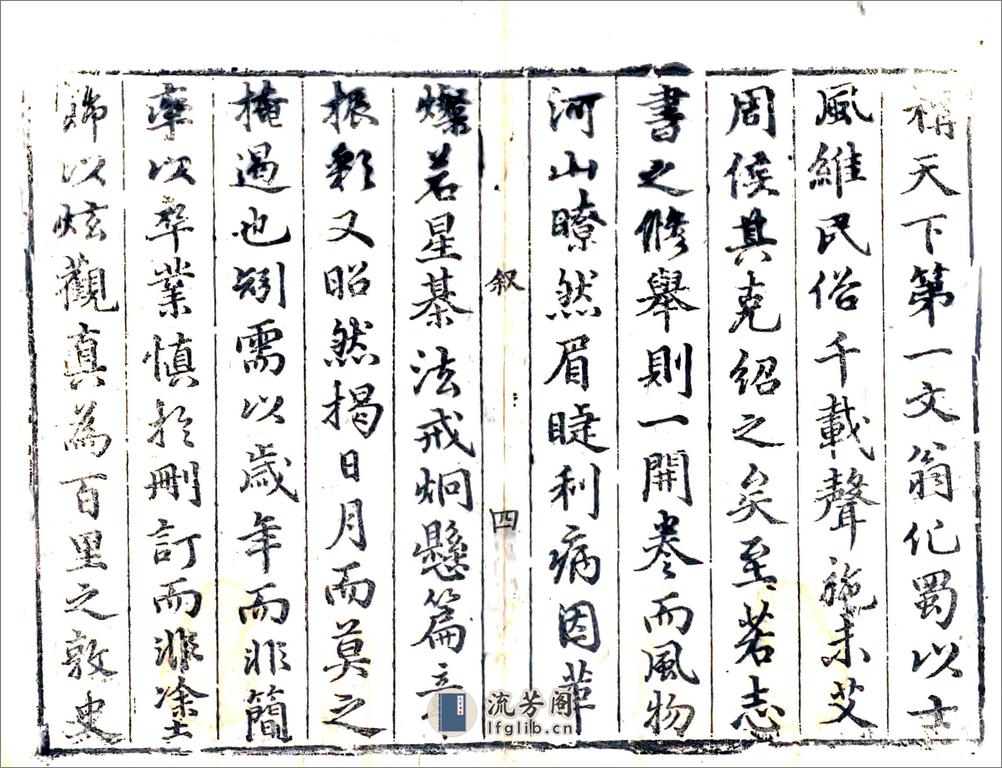 稱天下第一文翁化蜀以士
風維民俗千載聲施未艾
周侯其克紹之矣至若志
書之脩舉則一開卷而風物
河山瞭然眉睫利病因革
叙
四
燦若星棊法戒炯懸篇
振彰又昭然揭日月而莫之
掩過也矧需以歲年而非簡
率以卒業慎於刪訂而非塗
飾以炫觀真為百里之敦史
流芳阁
lfglib.cn